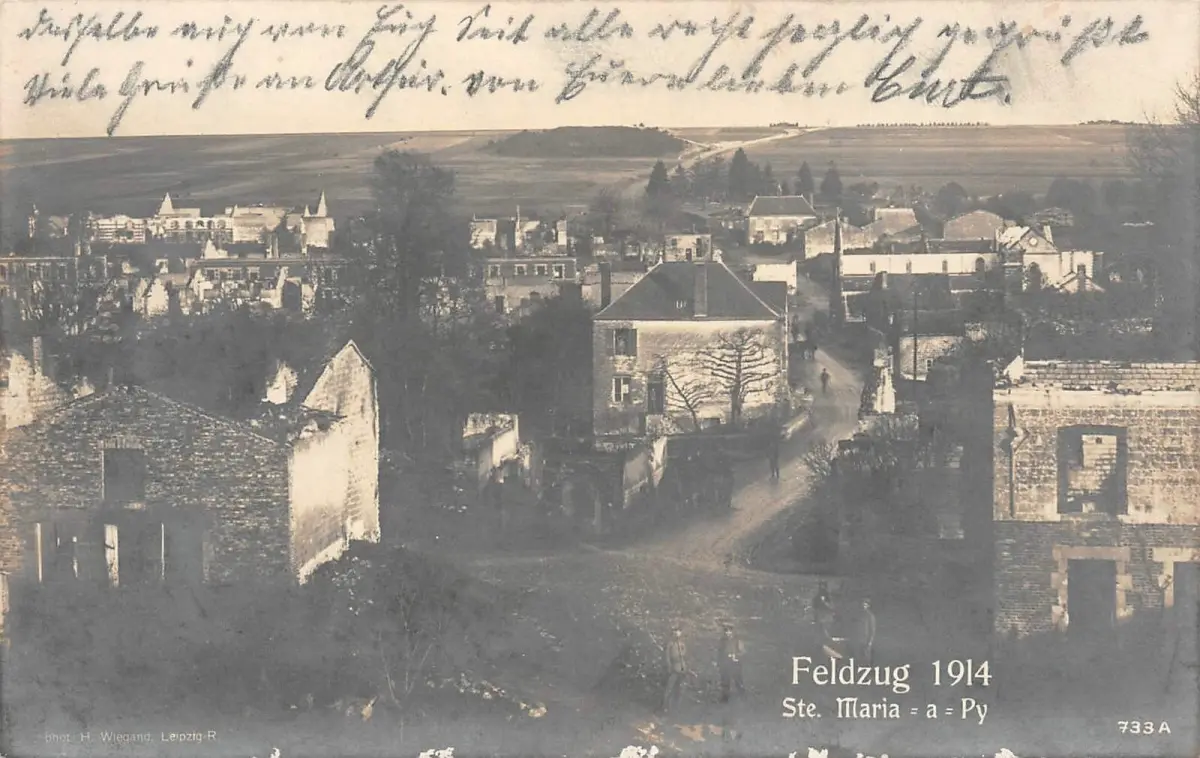 dasselbe auch von Euch. Seit alle recht herzlich gegrüßt
Viele Grüße an Arthur. von Euerm lieben
Feldzug 1914
Ste. Maria = a = Py
phot. H. Wiegand, Leipzig-R
733 A